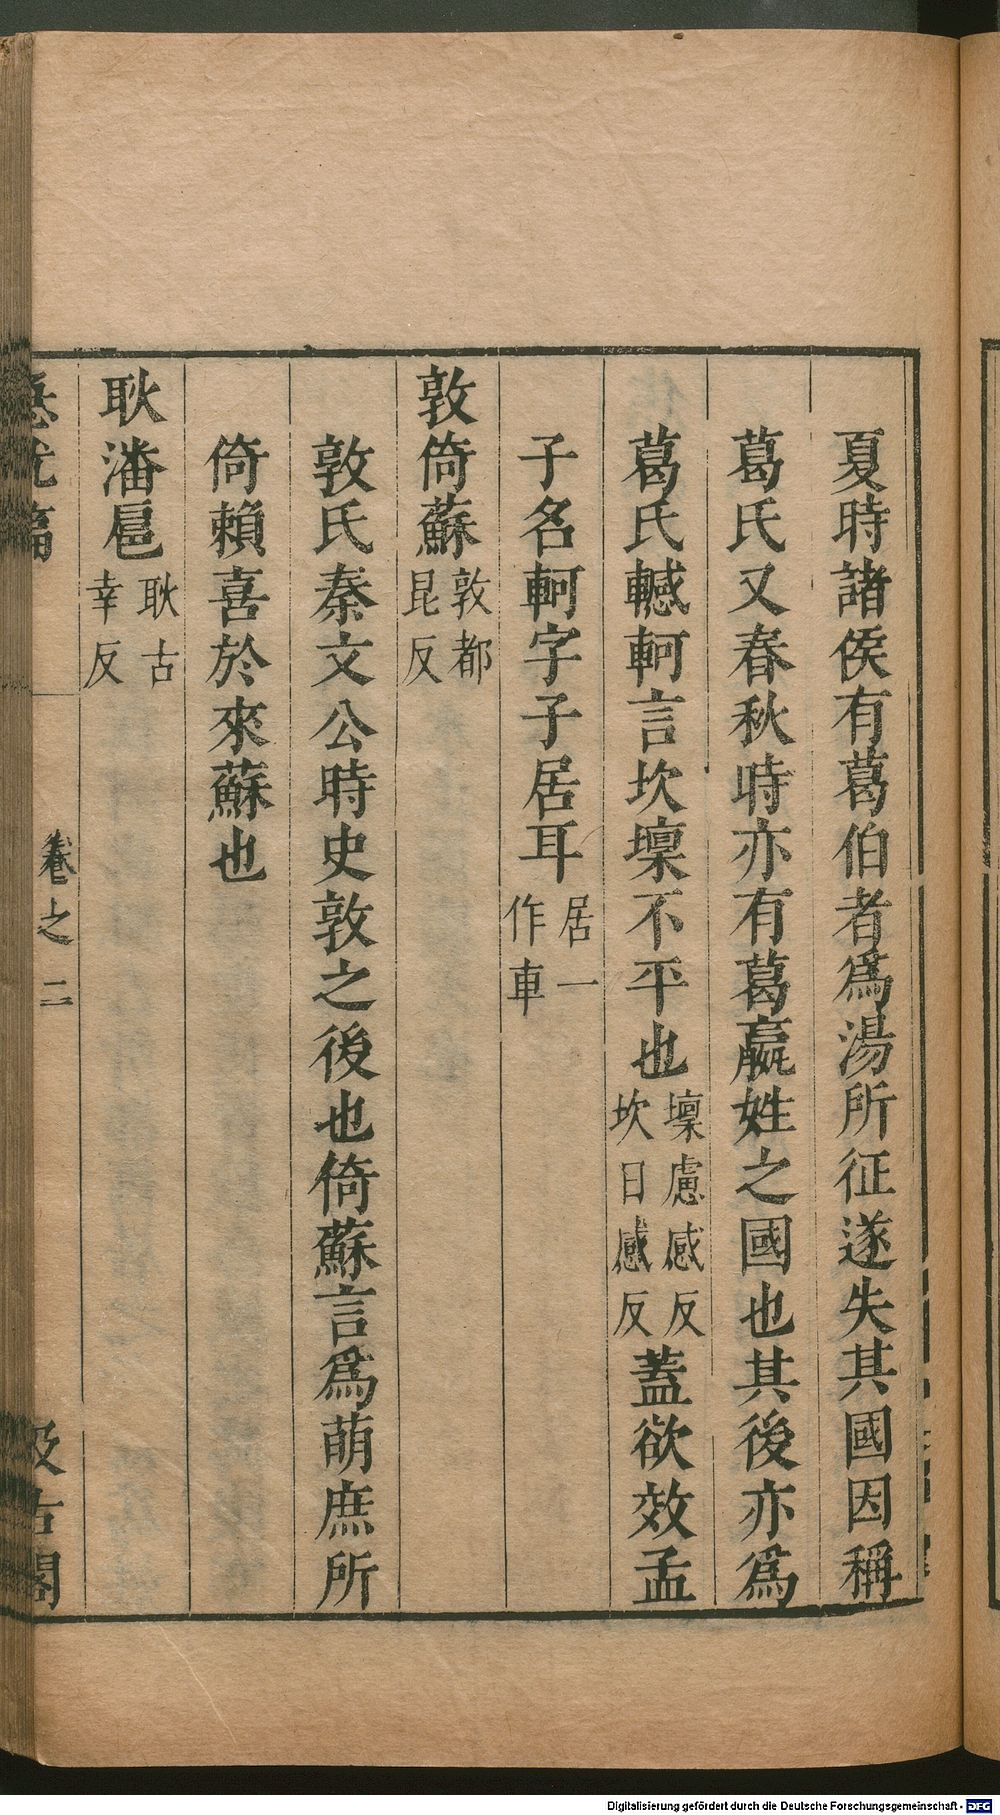 夏時諸侯有葛伯者爲湯所征遂失其國因稱
葛氏又春秋時亦有葛嬴姓之國也其後亦爲
葛氏轗軻言坎壈不平也壈慮感反坎日感反蓋欲效孟
子名軻字子居耳居一作車
敦倚蘇敦都昆反
敦氏秦文公時史敦之後也倚蘇言爲萌庶所
倚賴喜於來蘇也
耿潘扈耿古幸反
急就篇
卷之二
汲古閣
Digitalisierung gefördert durch die Deutsche Forschungsgemeinschaft - DFG